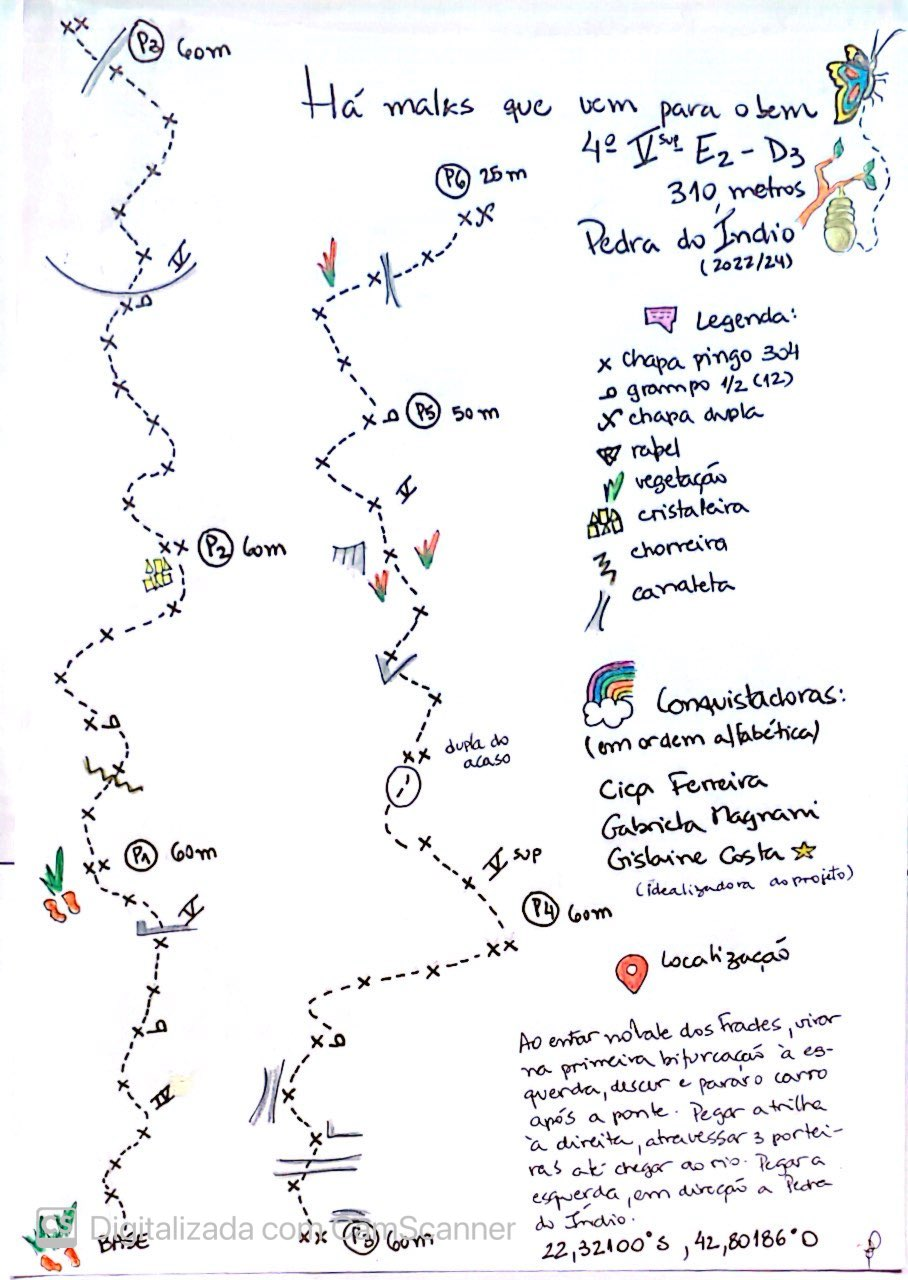 Há malks que vem para o bem
4º Vsup E2 - D3
310 metros
Pedra do Índio
(2022/24)
P3 60m
V
P2 60m
P1 60m
V
IV
BASE
P6 25m
P5 50m
V
dupla do
acaso
V sup
P4 60m
P3 60m
Legenda:
chapa pingo 304
grampo 1/2 (12)
chapa dupla
rapel
vegetação
cristaleira
chorreira
canaleta
Conquistadoras:
(em ordem alfabética)
Ciça Ferreira
Gabriela Magnani
Gislaine Costa
(idealizadora do projeto)
Localização
Ao entar no Vale dos Frades, virar
na primeira bifurcação à es-
querda, descer e parar o carro
após a ponte. Pegar a trilha
à direita, atravessar 3 portei-
ras até chegar ao rio. Pegar a
esquerda, em direção a Pedra
do Índio.
22,32100°S, 42,80186°O
CS Digitalizada com CamScanner